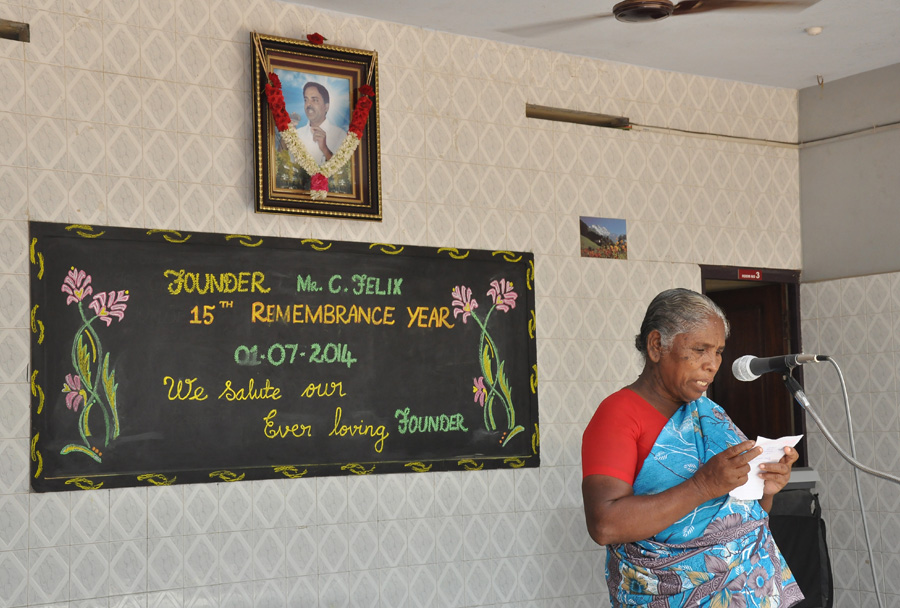 FOUNDER Mr. C. FELIX
15TH REMEMBRANCE YEAR
01-07-2014
We Salute our
Ever loving FOUNDER
3